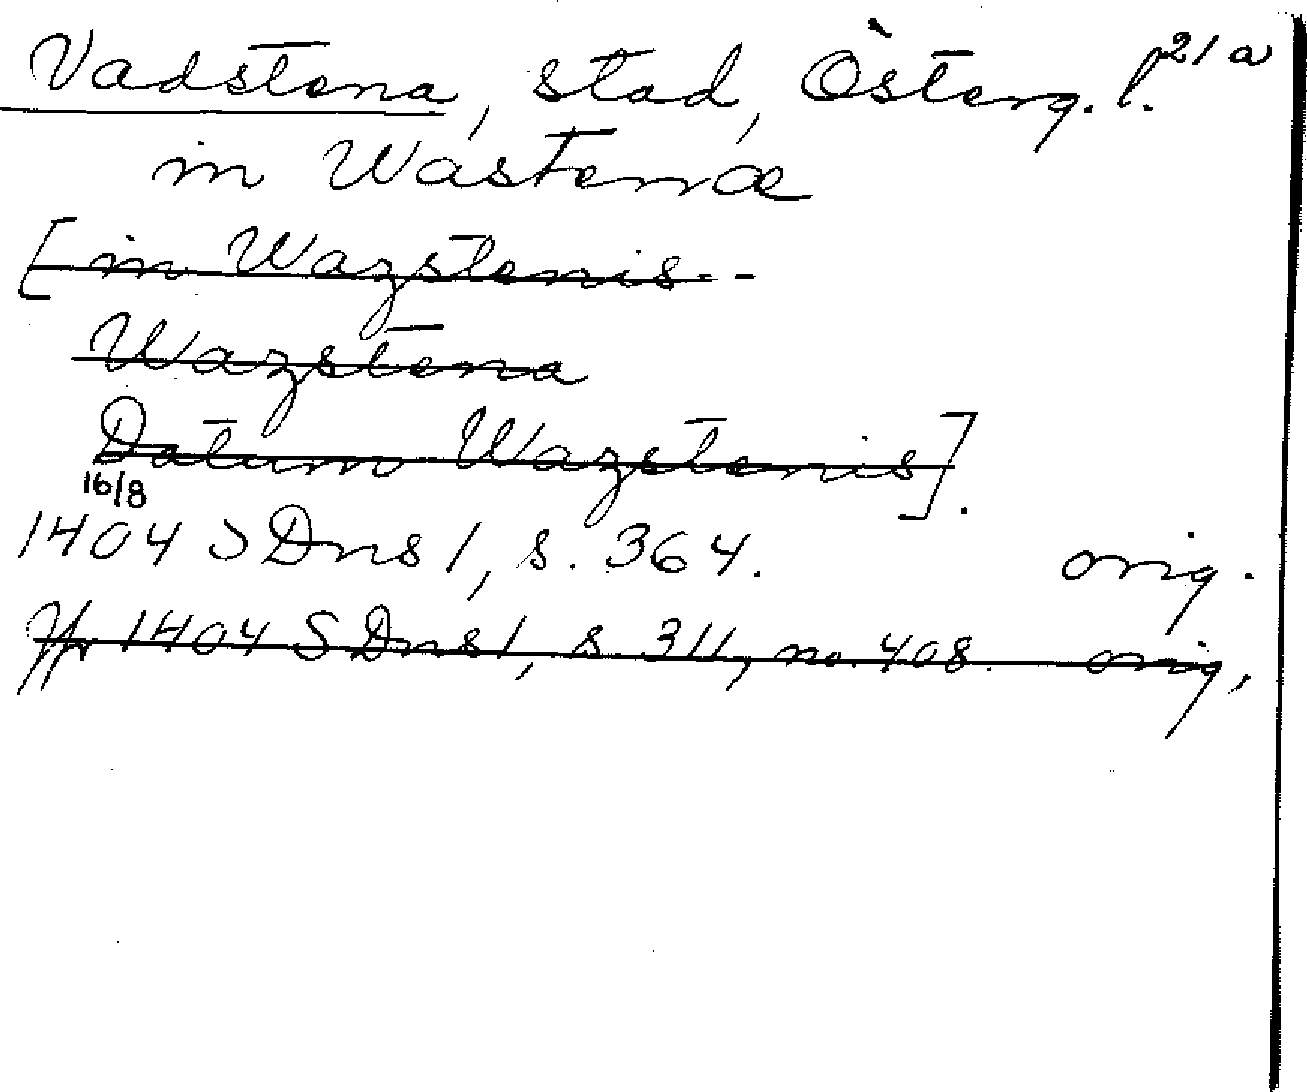 Vadstena, stad, Österg. l. 21 a
in Wastenæ
[in Wazstenis--
Wazstena
Datum Wazstenis].
16/8
1404 SDns 1, s. 364. orig.
Jfr 1404 SDns 1, s. 311, no. 408. orig,